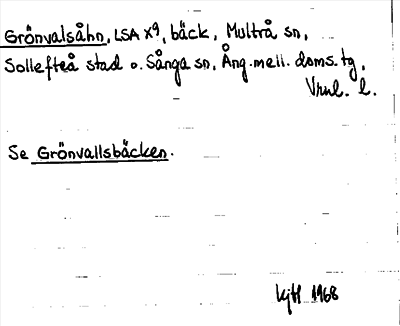 Grönvalsåhn, LSA X9, bäck, Multrå sn,
Sollefteå stad o. Sånga sn, Ång. mell. doms. tg,
Vnl. l.
Se Grönvallsbäcken.
1968